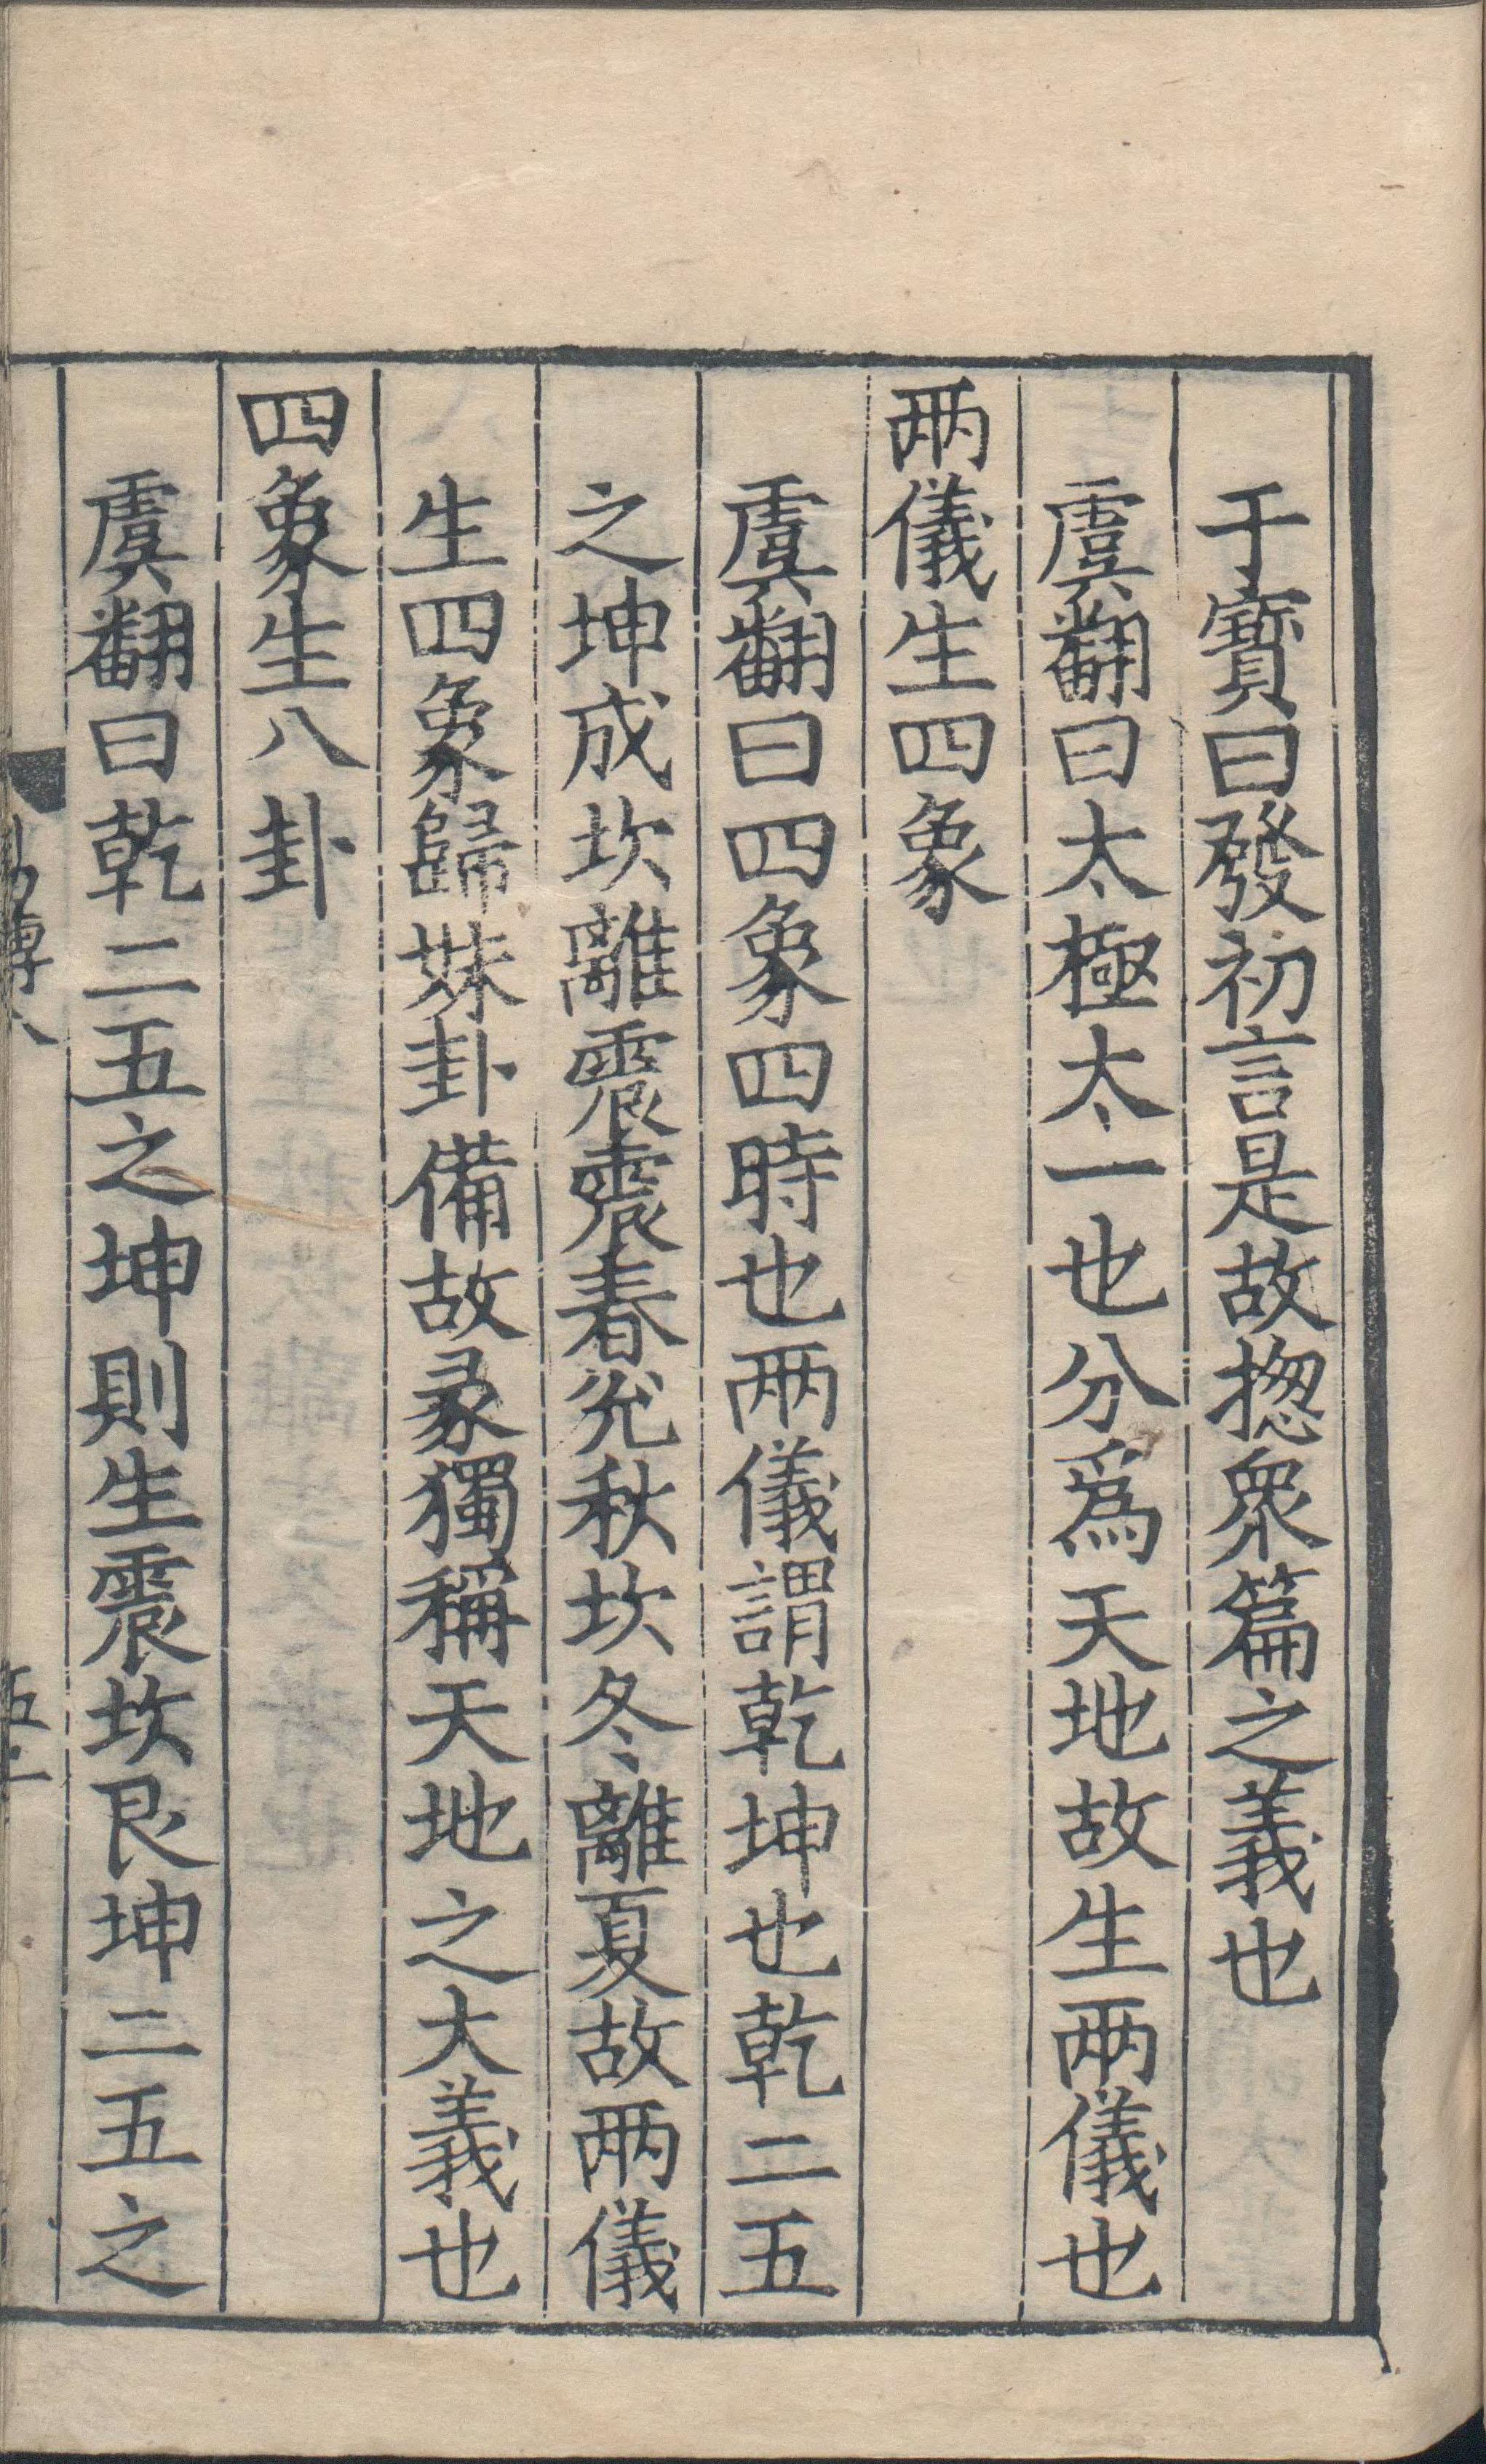 于寶曰發初言是故揔衆篇之義也
虞翻曰太極太一也分爲天地故生兩儀也
兩儀生四象
虞翻曰四象四時也兩儀謂乾坤也乾二五
之坤成坎離震震春兊秋坎冬離夏故兩儀
生四象歸妹卦備故彖獨稱天地之大義也
四象生八卦
虞翻曰乾二五之坤則生震坎艮坤二五之